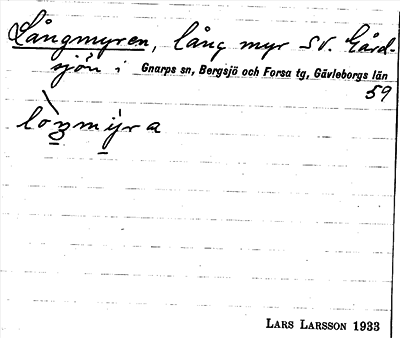 Långmyren, lång myr SV. Gård-
sjön i Gnarps sn, Bergsjö och Forsa tg, Gävleborgs län
59
lòŋmyra
LARS LARSSON 1933